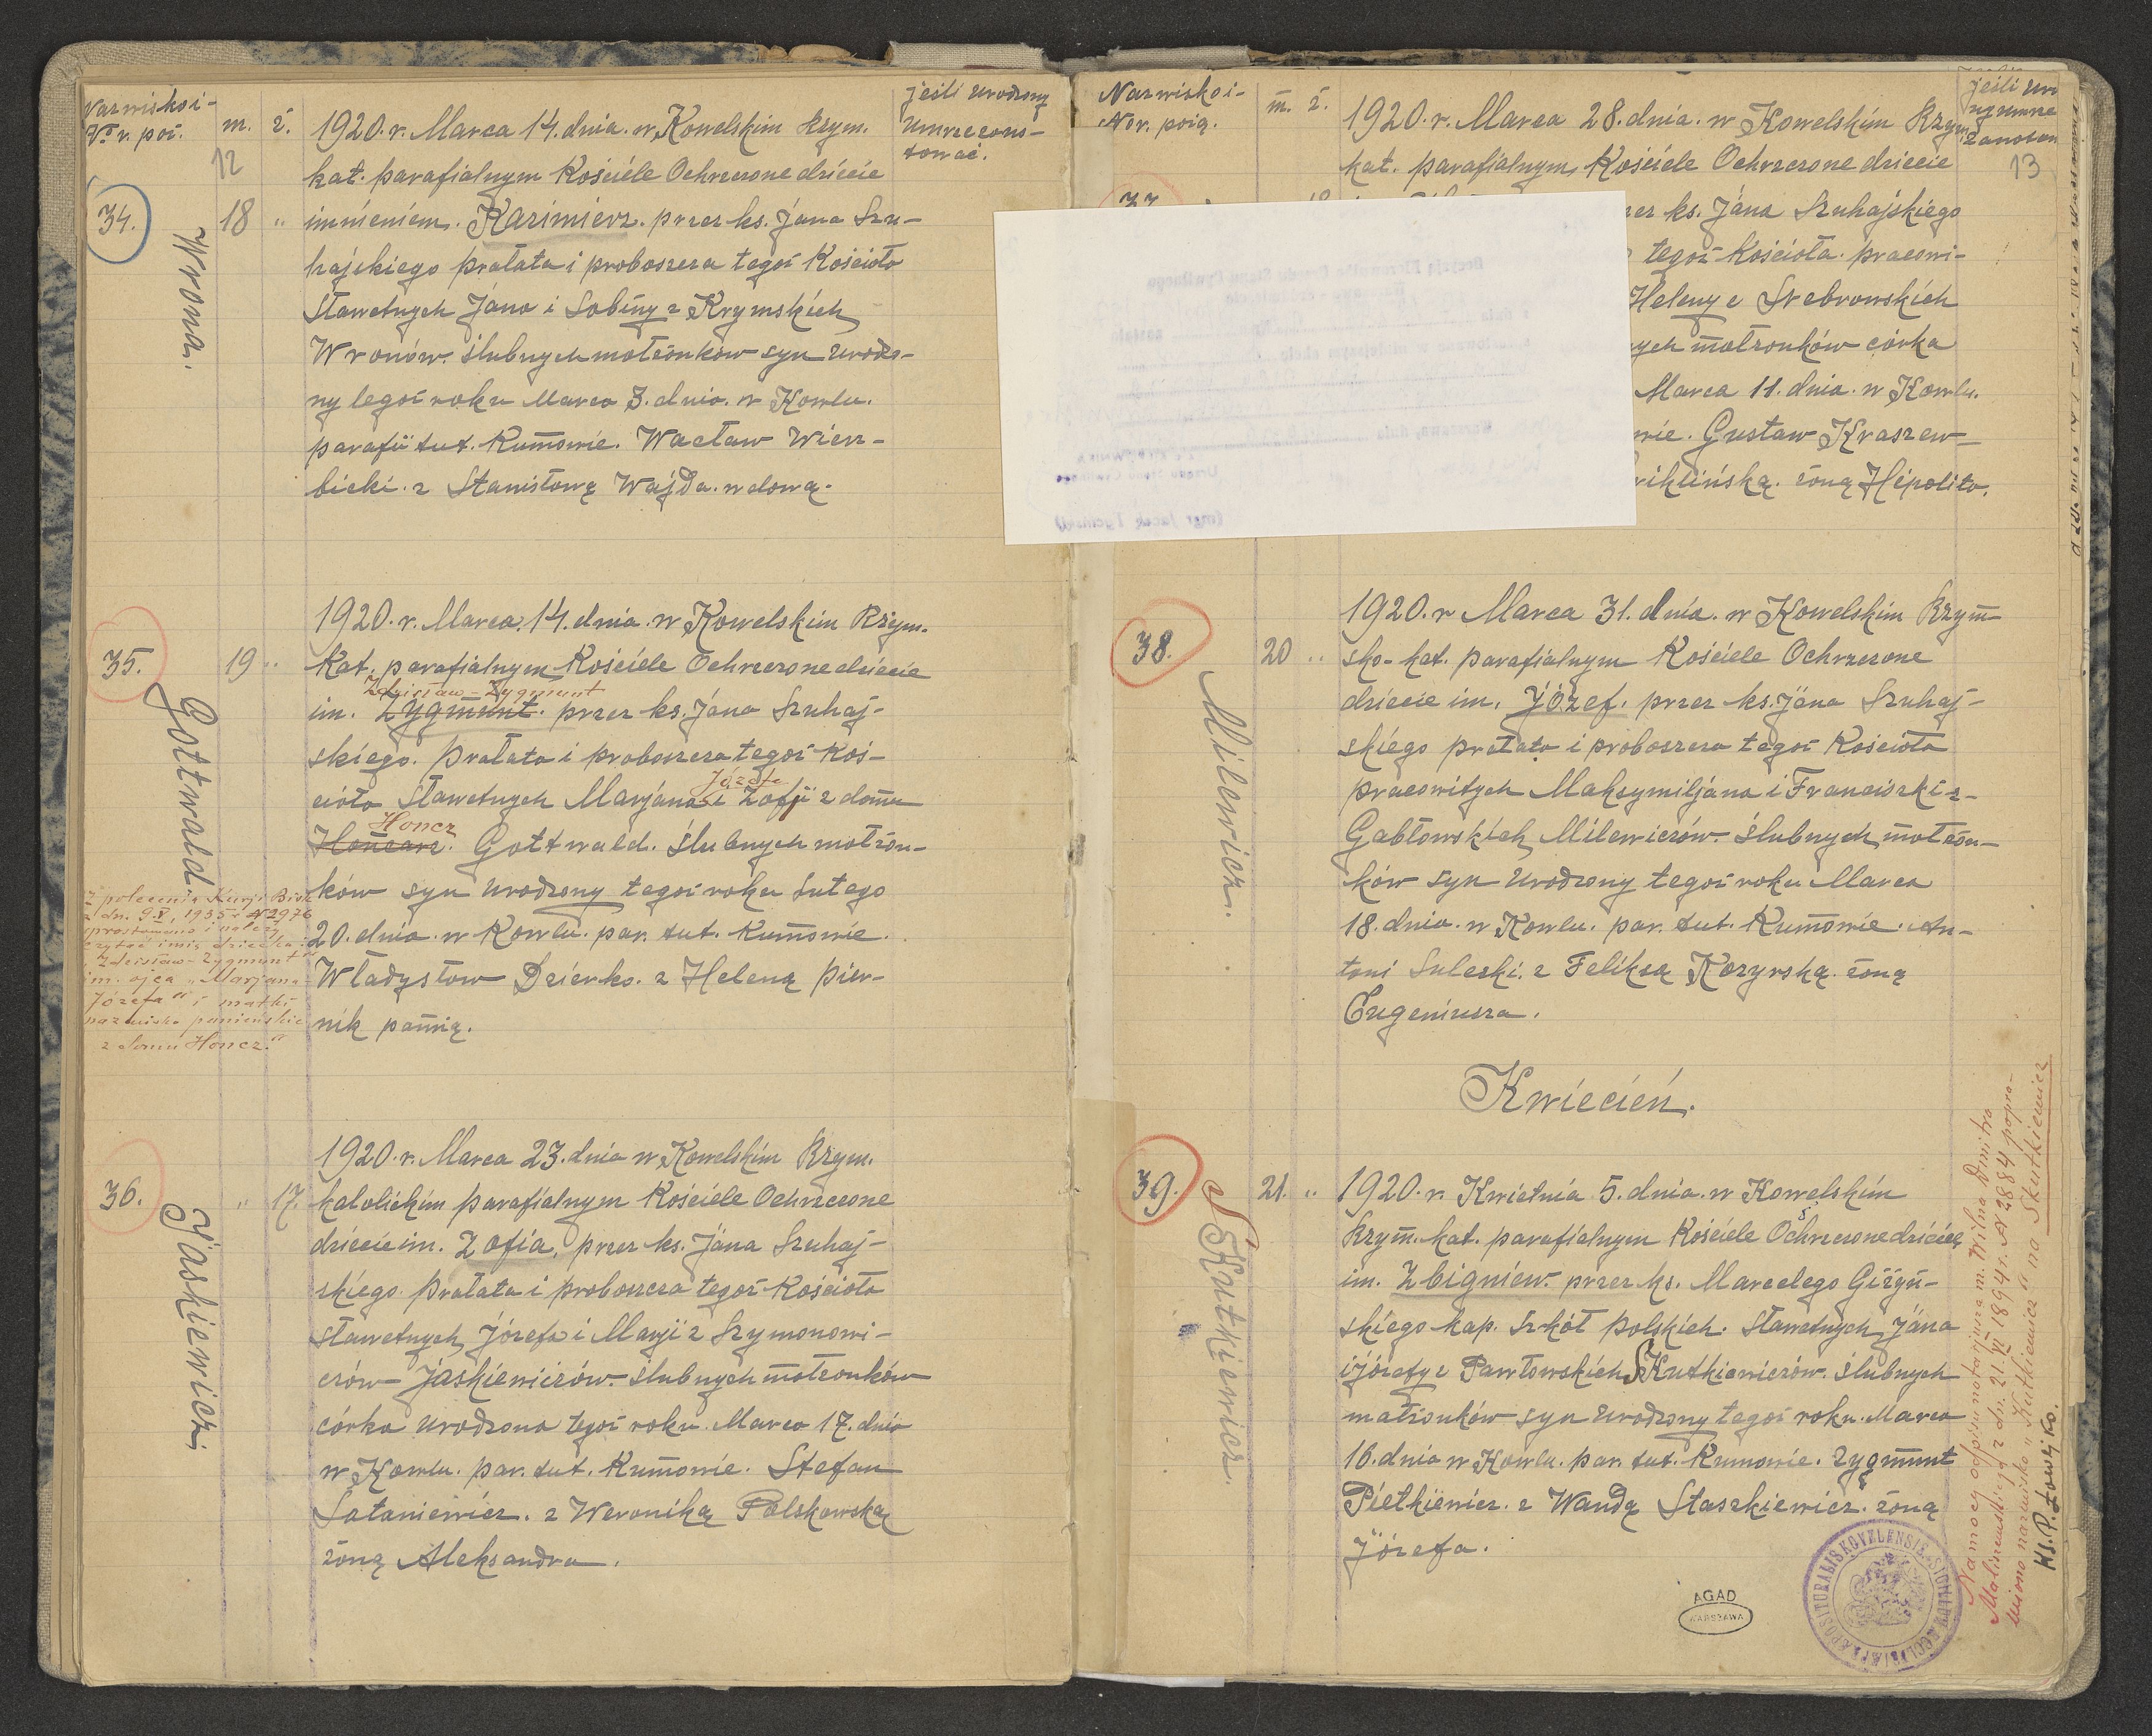 Nazwisko i
Nr. r. poż.
m.
ż.
jeśli urodzony
umrze zano-
tować.
12
34.
Wrona.
18 "
1920. r. Marca 14. dnia. w Kowelskim Rzym.
kat. parafialnym Kościele Ochrzczone dziécie
imnieniem. Kazimierz. przez ks. Jana Szu-
hajskiego prałata i proboszcza tegoż Kościoła
Sławetnych Jána i Sabiny z Krymskich
Wronów. ślubnych małżonków syn urodzo-
ny tegoż roku Marca 3. dnia. w Kowlu.
parafii tut. Kumowie. Wacław Wierz-
bicki. z Stanisławą Wajda. wdową.
35.
Gottwald.
19 "
1920. r. Marca. 14. dnia. w Kowelskim Rzym.
Kat. parafialnym Kościele Ochrzczone dziecie
Zdzisław-Zygmunt
im. Zygmunt. przez ks. Jána Szuhaj-
skiego. Prałata i proboszcza tegoż Koś-
Józefa
cioła Sławetnych Marjana i Zofji z domu
Honcz
Hończarz. Gottwald. ślubnych małżon-
ków syn urodzony tegoż roku Lutego
20. dnia. w Kowlu. par. tut. Kumowie.
Władysław Dzierko. z Heleną Pier-
nik panną.
Z polecenia Kurji Bisk.
z dn. 9.V, 1935 r. № 2976
sprostowano i należy
czytać imię dziecka:
"Zdzisław-Zygmunt"
im. ojca "Marjana
Józefa" i matki
nazwisko panieńskie
z domu Honcz."
36.
Jaśkiewicz.
" 17.
1920. r. Marca 23. dnia w Kowelskim Rzym.
katolickim parafialnym Kościele Ochrzczone
dziécie im. Zofia, przez ks. Jána Szuhaj-
skiego Prałata i proboszcza tegoż Kościoła
sławetnych Józefa i Marji z Szymonowi-
czów Jaśkiewiczów. ślubnych małżonków
córka urodzona tegoż roku. Marca 17. dnia
w Kowlu. par. tut. Kumowie. Stefan
Łataniewicz. z Weroniką Polskowską
żoną Aleksandra.
Nazwisko i
Nor. pożą.
m. ż.
13
37.
1920. r. Marca 28. dnia. w Kowelskim Rzym.
kat. parafialnym Kościele Ochrzczone dziecie
ks. Jána Szuhajskiego
tegoż Kościoła. pracowi-
Heleny z Srebrowskich
małżonków córka
Marca 11. dnia. w Kowlu.
Gustaw Kraszew-
żoną Hipolita.
38.
Milewicz.
20 "
1920. r Marca 31. dnia. w Kowelskim Rzym-
sko-kat. parafialnym Kościele Ochrzczone
dziecie im. Józef. przez ks. Jána Szuhaj-
skiego prałata i proboszcza tegoż Kościoła
pracowitych Maksymiljána i Franciszki z-
Gabłowskich Milewiczów. ślubnych małżon-
ków syn urodzony tegoż roku Marca
18. dnia. w Kowlu. par. tut. Kumowie. An-
toni Suleski. z Feliksą Kozyrską. żoną
Eugeniusza.
Kwiecień.
39.
SKutkiewicz.
21. "
1920. r. Kwietnia 5. dnia. w Kowelskim
Rzym. kat. parafialnym Kościele Ochrzczone dziécie
im. Zbigniew. przez ks. Marcelego Giżyń-
skiego kap. Szkół Polskich. Sławetnych Jána
i Józefy z Pawłowskich SKutkiewiczów. ślubnych
małżonków syn urodzony tegoż roku. Marca
16. dnia w Kowlu. par. tut. Kumowie. Zygmunt
Pietkiewicz. z Wandą Staszkiewicz. żoną
Józefa.
Na mocy odpisu notarjusza m. Wilna Dmitra
Malinowskiego z dn. 21.VI 1894 r. № 2884 popra-
wiono nazwisko "Kutkiewicz" na Skutkiewicz
AGAD
WARSZAWA